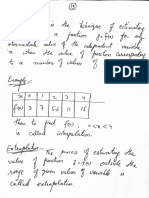 is the technique of estimating
a function y=f(x) for any
intermediate value of the independent variable
x when the value of function corresponding
to a number of values of
Example:-
x 0 2 3 4
f(x) 3 7 56 11 15
then to find f(x), 0<x<4
is called interpolation.
Extrapolation:- The process of estimating the
value of function y=f(x) outside the
range of given value of variable is
called extrapolation.